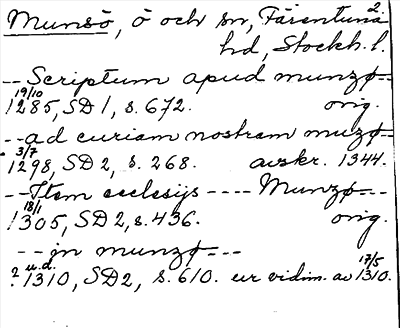 Munsö, ö och sn, Färentuna 2.
hd, Stockh. l.
-- Scriptum apud munzø--
19/10
1285, SD 1, s. 672. orig.
-- ad curiam nostram muzø--
3/7
1298, SD 2, s. 268. avskr. 1344.
-- Item ecclesijs ---- Munzø---
18/1
1305, SD 2, s. 436. orig.
-- jn munzø---
? u.d. 1310, SD2, s. 610. ur vidim. av 17/5 1310.